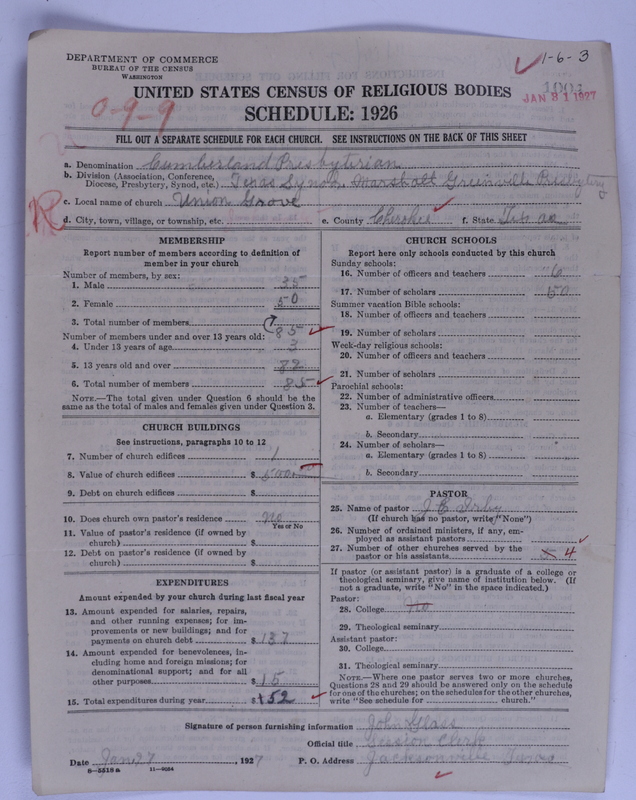 DEPARTMENT OF COMMERCE
BUREAU OF THE CENSUS
WASHINGTON
1-6-3
1004
JAN 31 1927
0-9-9
UNITED STATES CENSUS OF RELIGIOUS BODIES
SCHEDULE: 1926
FILL OUT A SEPARATE SCHEDULE FOR EACH CHURCH. SEE INSTRUCTIONS ON THE BACK OF THIS SHEET
a. Denomination Cumberland Presbyterian
b. Division (Association, Conference, Diocese, Presbytery, Synod, etc.) Texas Synod, Marshall Greenville Presbytery
c. Local name of church Union Grove
R
d. City, town, village, or township, etc. e. County Cherokee f. State Texas
MEMBERSHIP
Report number of members according to definition of
member in your church
Number of members, by sex:
1. Male 35
2. Female 50
3. Total number of members 85
Number of members under and over 13 years old:
4. Under 13 years of age 3
5. 13 years old and over 82
6. Total number of members 85
NOTE.—The total given under Question 6 should be the
same as the total of males and females given under Question 3.
CHURCH BUILDINGS
See instructions, paragraphs 10 to 12
7. Number of church edifices 1
8. Value of church edifices $ 500
9. Debt on church edifices $
10. Does church own pastor's residence No
Yes or No
11. Value of pastor's residence (if owned by
church) $
12. Debt on pastor's residence (if owned by
church) $
EXPENDITURES
Amount expended by your church during last fiscal year
13. Amount expended for salaries, repairs,
and other running expenses; for im-
provements or new buildings; and for
payments on church debt $ 137
14. Amount expended for benevolences, in-
cluding home and foreign missions; for
denominational support; and for all
other purposes $ 15
15. Total expenditures during year $ 152
CHURCH SCHOOLS
Report here only schools conducted by this church
Sunday schools:
16. Number of officers and teachers 6
17. Number of scholars 50
Summer vacation Bible schools:
18. Number of officers and teachers
19. Number of scholars
Week-day religious schools:
20. Number of officers and teachers
21. Number of scholars
Parochial schools:
22. Number of administrative officers
23. Number of teachers—
a. Elementary (grades 1 to 8)
b. Secondary
24. Number of scholars—
a. Elementary (grades 1 to 8)
b. Secondary
PASTOR
25. Name of pastor J E Irby
(If church has no pastor, write "None")
26. Number of ordained ministers, if any, em-
ployed as assistant pastors
27. Number of other churches served by the
pastor or his assistants 5 4
If pastor (or assistant pastor) is a graduate of a college or
theological seminary, give name of institution below. (If
not a graduate, write "No" in the space indicated.)
Pastor:
28. College No
29. Theological seminary
Assistant pastor:
30. College
31. Theological seminary
NOTE.—Where one pastor serves two or more churches,
Questions 28 and 29 should be answered only on the schedule
for one of the churches; on the schedules for the other churches,
write "See schedule for church."
Signature of person furnishing information John Glass
Official title Session Clerk
Date Jan 27, 1927 P. O. Address Jacksonville Texas
8-5518a 11-9064